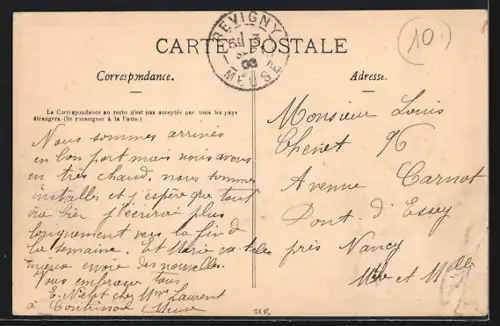 REVIGNY
MEUSE
CARTE POSTALE
10
Correspondance.
Adresse.
La Correspondance au recto n'est pas acceptée par tous les pays
étrangers. (Se renseigner à la Poste.)
Nous sommes arrivés
en bon port mais nous avons
eu très chaud, nous sommes
installés et j'espère que tout
ira bien j'écrirai plus
longuement vers la fin de
la semaine. Et Marie va-t-elle
mieux envoie des nouvelles.
Vous embrasse tous
E. chez Mme Laurent
à Meuse
Monsieur Louis
Thenet 96
Avenue Carnot
Pont d'Essey
près Nancy
Mthe et Mlle